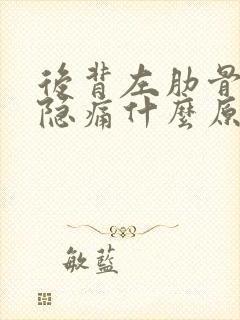 後背左肋骨
隐痛什麼原
敏藍